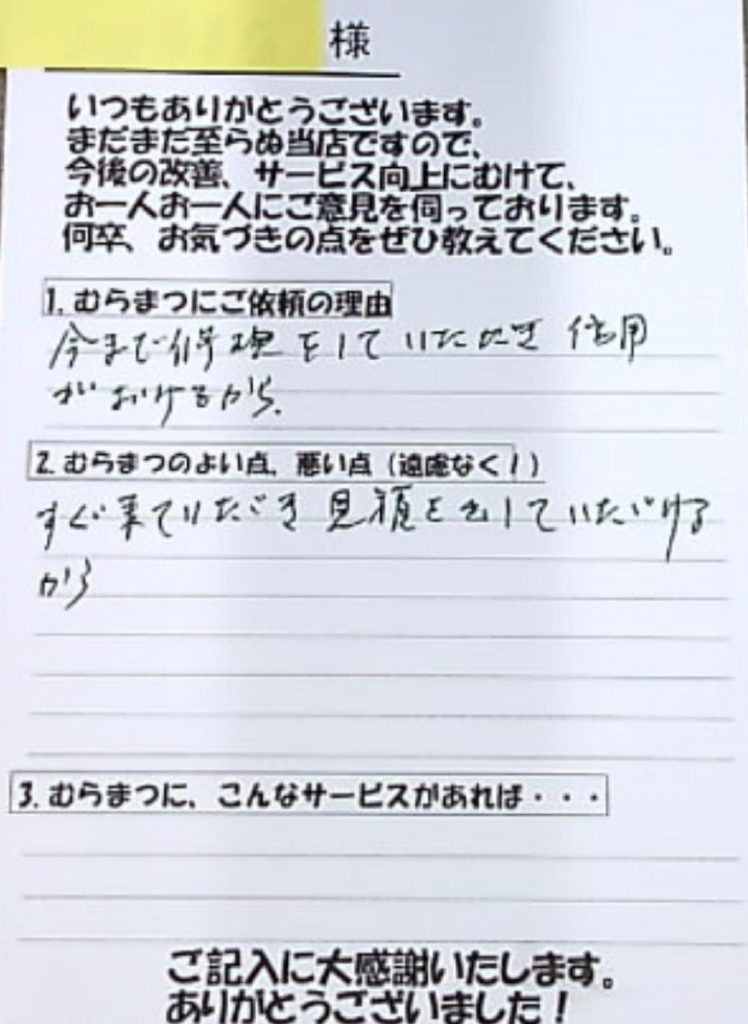 様
いつもありがとうございます。
まだまだ至らぬ当店ですので、
今後の改善、サービス向上にむけて、
お一人お一人にご意見を伺っております。
何卒、お気づきの点をぜひ教えてください。
1. むらまつにご依頼の理由
今まで修理をしていただき 信用
がおけるから.
2. むらまつのよい点、悪い点（遠慮なく！）
すぐ来ていただき 見積を出していただける
から
3. むらまつに、こんなサービスがあれば・・・
ご記入に大感謝いたします。
ありがとうございました！